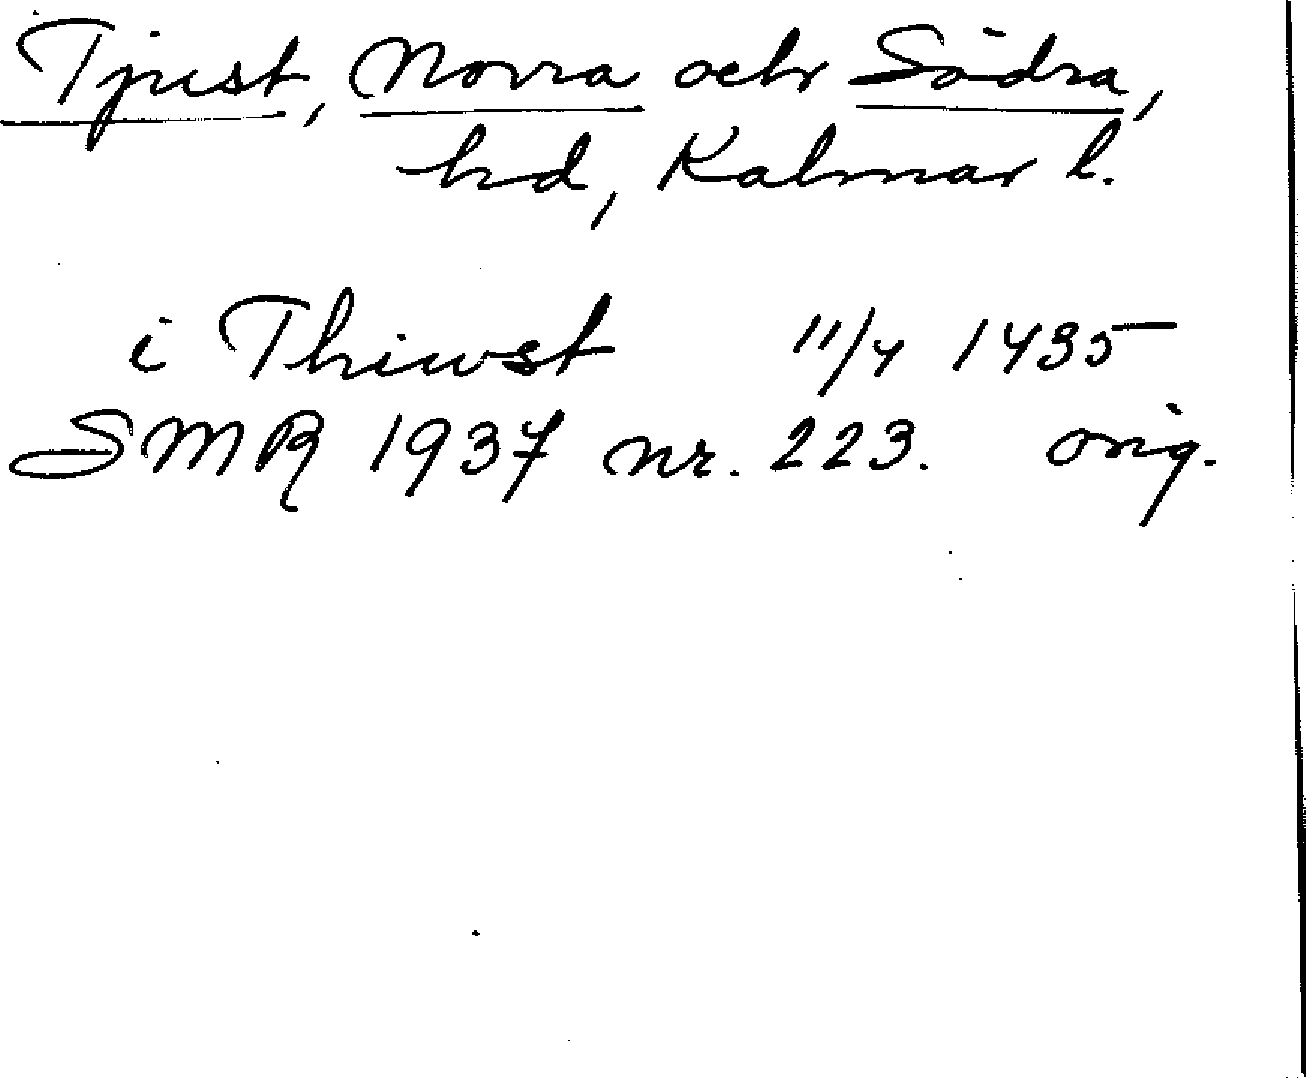 Tjust, Norra och Södra,
hd, Kalmar l.
i Thiwst 11/4 1435
SMR 1937 nr. 223. orig.